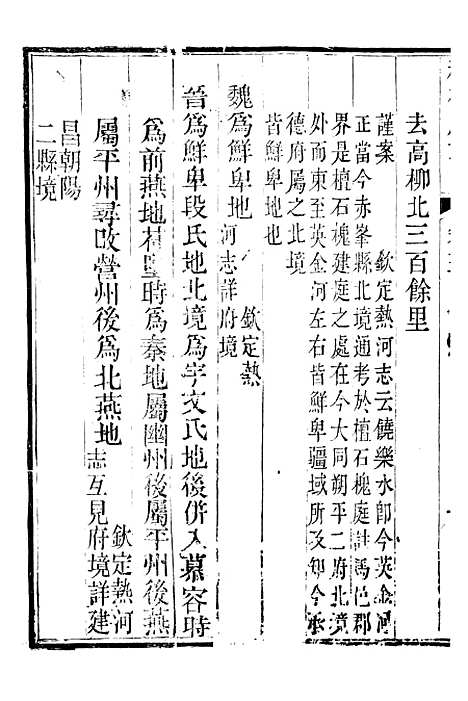 去高柳北三百餘里
謹案　欽定熱河志云饒樂水卽今英金河
正當今赤峯縣北境通考於檀石槐庭註馮邑郡
界是檀石槐建庭之處在今大同朔平二府北境
外而東至英金河左右皆鮮卑疆域所及卽今承
德府屬之北境
皆鮮卑地也
魏爲鮮卑地欽定熱
河志詳府境
晉爲鮮卑段氏地北境爲宇文氏地後併入慕容時
爲前燕地苻堅時爲秦地屬幽州後屬平州後燕
屬平州尋改營州後爲北燕地欽定熱河
志互見府境詳建
昌朝陽
二縣境